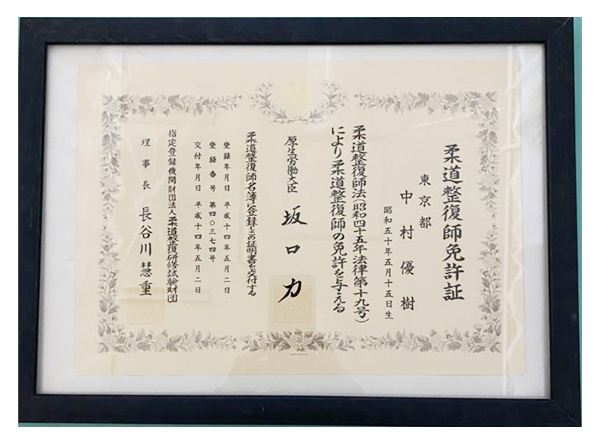 柔道整復師免許証
東京都
中村優樹
昭和五十年五月十五日生
柔道整復師法(昭和四十五年法律第十九号)
により柔道整復師の免許を与える
厚生労働大臣 坂口力
柔道整復師名簿に登録しこの証明書を交付する
登録年月日 平成十四年五月二日
登録番号 第四〇三七四号
交付年月日 平成十四年五月二日
指定登録機関財団法人柔道整復研修試験財団
理事長 長谷川慧重